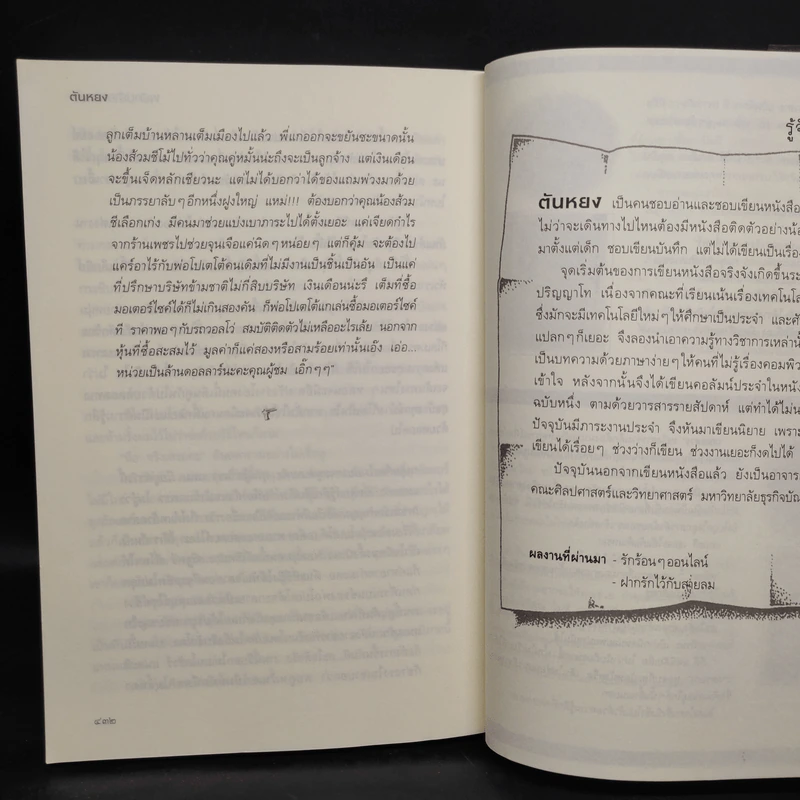 ตันหยง
ลูกเต็มบ้านหลานเต็มเมืองไปแล้ว พี่แกออกจะขยันซะขนาดนั้น
น้องส้วมชีโม้ไปทั่วว่าคุณคู่หมั้นน่ะถึงจะเป็นลูกจ้าง แต่เงินเดือน
จะขึ้นเจ็ดหลักเชียวนะ แต่ไม่ได้บอกว่าได้ของแถมพ่วงมาด้วย
เป็นภรรยาลับๆ อีกหนึ่งฝูงใหญ่ แหม!!! ต้องบอกว่าคุณน้องส้วม
ชีเลือกเก่ง มีคนมาช่วยแบ่งเบาภาระไปได้ตั้งเยอะ แค่เจียดกำไร
จากร้านเพชรไปช่วยจุนเจือแค่นิดๆ หน่อยๆ แต่ก็คุ้ม จะต้องไป
แคร์อาไร้กับพ่อโปเตโต้คนเดิมที่ไม่มีงานเป็นชิ้นเป็นอัน เป็นแค่
ที่ปรึกษาบริษัทข้ามชาติไม่กี่สิบบริษัท เงินเดือนน่ะรึ เต็มที่ซื้อ
มอเตอร์ไซค์ได้ก็ไม่เกินสองคัน ก็พ่อโปเตโต้แกเล่นซื้อมอเตอร์ไซค์
ที ราคาพอๆ กับรถวอลโว่ สมบัติติดตัวไม่เหลืออะไรเล้ย นอกจาก
หุ้นที่ซื้อสะสมไว้ มูลค่าก็แค่สองหรือสามร้อยเท่านั้นเอ๊ง เอ่อ...
หน่วยเป็นล้านดอลลาร์นะคะคุณผู้ชม เอิ๊กๆๆ"
๔๓๒
ตันหยง เป็นคนชอบอ่านและชอบเขียนหนังสือ
ไม่ว่าจะเดินทางไปไหนต้องมีหนังสือติดตัวอย่างน้อ
มาตั้งแต่เด็ก ชอบเขียนบันทึก แต่ไม่ได้เขียนเป็นเรื่อง
จุดเริ่มต้นของการเขียนหนังสือจริงจังเกิดขึ้นระ
ปริญญาโท เนื่องจากคณะที่เรียนเน้นเรื่องเทคโนโล
ซึ่งมักจะมีเทคโนโลยีใหม่ๆ ให้ศึกษาเป็นประจำ และศั
แปลกๆ ก็เยอะ จึงลองนำเอาความรู้ทางวิชาการเหล่านั้
เป็นบทความด้วยภาษาง่ายๆ ให้คนที่ไม่รู้เรื่องคอมพิว
เข้าใจ หลังจากนั้นจึงได้เขียนคอลัมน์ประจำในหนัง
ฉบับหนึ่ง ตามด้วยวารสารรายสัปดาห์ แต่ทำได้ไม่น
ปัจจุบันมีภาระงานประจำ จึงหันมาเขียนนิยาย เพราะ
เขียนได้เรื่อยๆ ช่วงว่างก็เขียน ช่วงงานเยอะก็งดไปได้
ปัจจุบันนอกจากเขียนหนังสือแล้ว ยังเป็นอาจาร
คณะศิลปศาสตร์และวิทยาศาสตร์ มหาวิทยาลัยธุรกิจบัณ
ผลงานที่ผ่านมา - รักร้อนๆ ออนไลน์
- ฝากรักไว้กับสายลม